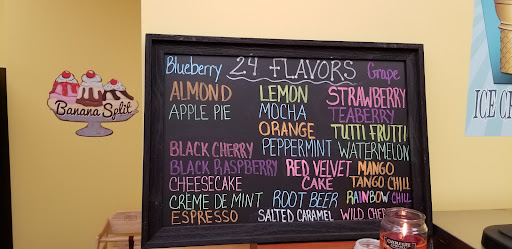 Blueberry 24 FLAVORS Grape
ALMOND LEMON STRAWBERRY
APPLE PIE MOCHA TEABERRY
ORANGE TUTTI FRUTTI
BLACK CHERRY PEPPERMINT WATERMELON
BLACK RASPBERRY RED VELVET MANGO
CHEESECAKE CAKE TANGO CHILL
CRÈME DE MINT ROOT BEER RAINBOW CHILL
ESPRESSO SALTED CARAMEL WILD
Banana Split
ICE